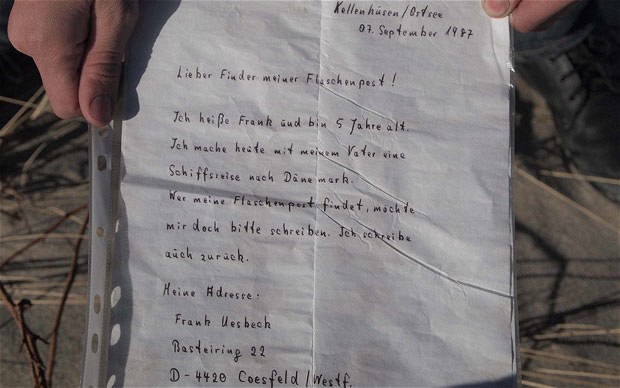 Kellenhüsen/Ostsee
07. September 1987
Lieber Finder meiner Flaschenpost!
Ich heiße Frank ünd bin 5 Jahre alt.
Ich mache heüte mit meinem Vater eine
Schiffsreise nach Dänemark.
Wer meine Flaschenpost findet, möchte
mir doch bitte schreiben. Ich schreibe
aüch zurück.
Meine Adresse:
Frank Uesbeck
Basteiring 22
D-4420 Coesfeld/Westf.